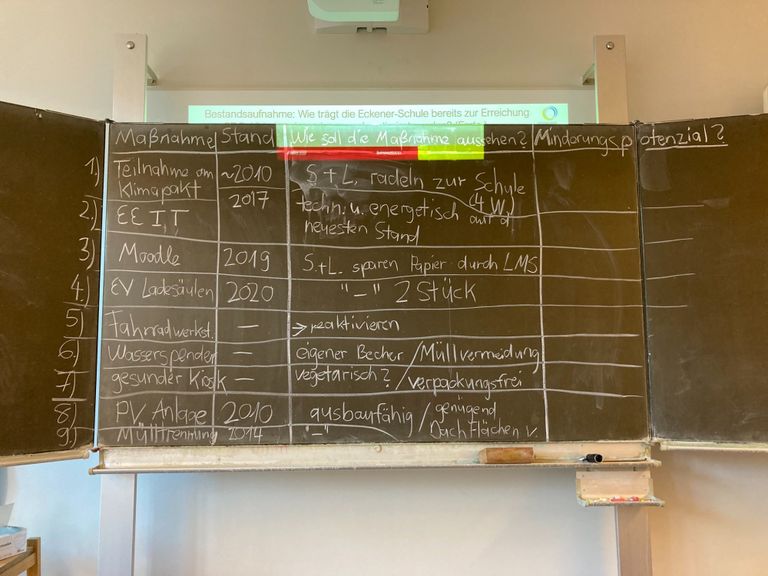 Bestandsaufnahme: Wie trägt die Eckener-Schule bereits zur Erreichung
Maßnahme Stand Wie soll die Maßnahme aussehen? Minderungspotenzial?
1.) Teilnahme am Klimapakt ~2010 S.+L. radeln zur Schule (4 W.)
2.) EE IT 2017 techn. u. energetisch auf d neuesten Stand
3.) Moodle 2019 S.+L. sparen Papier durch LMS
4.) EV Ladesäulen 2020 "–" 2 Stück
5.) Fahrradwerkst. – → reaktivieren
6.) Wasserspender – eigener Becher / Müllvermeidung
7.) gesunder Kiosk – vegetarisch? / verpackungsfrei
8.) PV Anlage 2010 "ausbaufähig / genügend Dachflächen v.
9.) Mülltrennung 2014 "–"